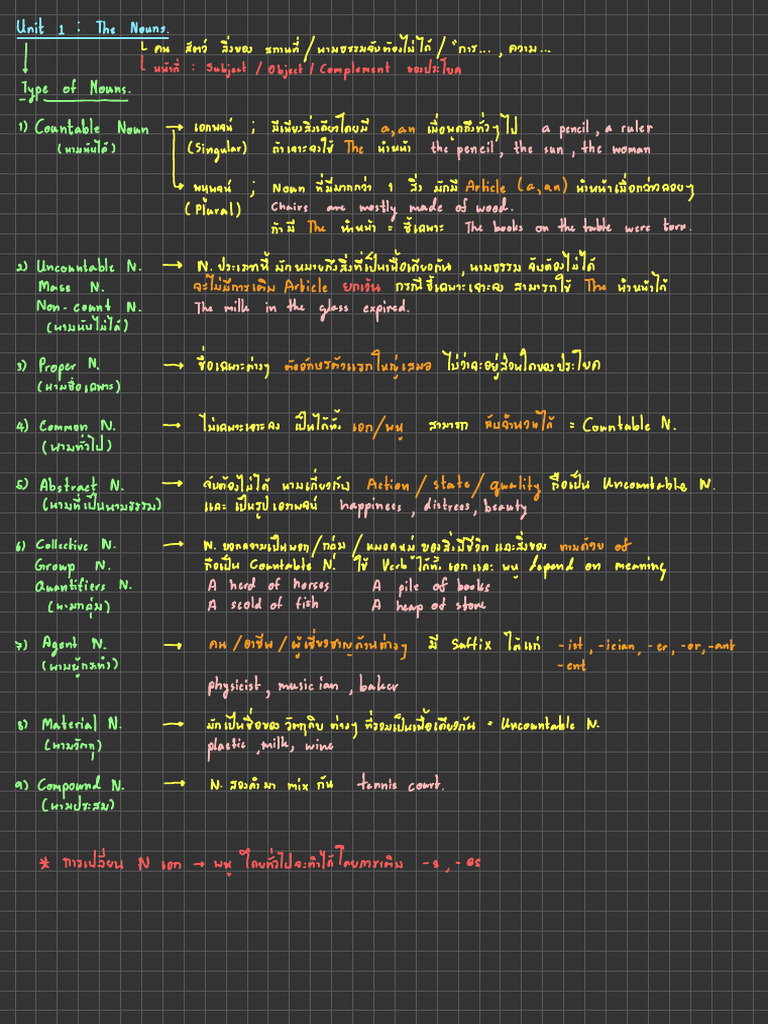 Unit 1 : The Nouns.
คน สัตว์ สิ่งของ สถานที่ / นามธรรมจับต้องไม่ได้ / "การ... , ความ...
หน้าที่ : Subject / Object / Complement ของประโยค
Type of Nouns.
1) Countable Noun → เอกพจน์ ; มีเพียงสิ่งเดียวโดยมี a, an เมื่อพูดถึงทั่วๆ ไป a pencil, a ruler
(นามนับได้) (Singular) ถ้าเจาะจงใช้ The นำหน้า the pencil, the sun, the woman
→ พหูพจน์ ; Noun ที่มีมากกว่า 1 สิ่ง มักมี Article (a, an) นำหน้าเมื่อกล่าวลอยๆ
(Plural) Chairs are mostly made of wood.
ถ้ามี The นำหน้า = ชี้เฉพาะ The books on the table were torn.
2) Uncountable N. → N. ประเภทนี้ มักหมายถึงสิ่งที่เป็นเนื้อเดียวกัน , นามธรรม จับต้องไม่ได้
Mass N. จะไม่มีการเติม Article ยกเว้น กรณีชี้เฉพาะเจาะจง สามารถใช้ The นำหน้าได้
Non-count N. The milk in the glass expired.
(นามนับไม่ได้)
3) Proper N. → ชื่อเฉพาะต่างๆ ตัวอักษรตัวแรกใหญ่เสมอ ไม่ว่าจะอยู่ส่วนใดของประโยค
(นามชื่อเฉพาะ)
4) Common N. → ไม่เฉพาะเจาะจง เป็นได้ทั้ง เอก/พหู สามารถ นับจำนวนได้ = Countable N.
(นามทั่วไป)
5) Abstract N. → จับต้องไม่ได้ นามเกี่ยวกับ Action / state / quality ถือเป็น Uncountable N.
(นามที่เป็นนามธรรม) และ เป็นรูปเอกพจน์ happiness, distress, beauty
6) Collective N. → N. บอกความเป็นพวก/กลุ่ม / หมวดหมู่ ของสิ่งมีชีวิต และสิ่งของ ตามด้วย of
Group N. ถือเป็น Countable N. ใช้ Verb ได้ทั้ง เอก และ พหู depend on meaning
Quantifiers N. A herd of horses A pile of books
(นามกลุ่ม) A scold of fish A heap of stone
7) Agent N. → คน / อาชีพ / ผู้เชี่ยวชาญด้านต่างๆ มี Suffix ได้แก่ -ist, -ician, -er, -or, -ant
(นามผู้กระทำ) -ent
physicist, musician, baker
8) Material N. → มักเป็นชื่อของ วัตถุดิบ ต่างๆ ที่รวมเป็นเนื้อเดียวกัน = Uncountable N.
(นามวัตถุ) plastic, milk, wine
9) Compound N. → N. สองคำมา mix กัน tennis court.
(นามประสม)
* การเปลี่ยน N เอก → พหู โดยทั่วไปจะทำได้โดยการเติม -s, -es